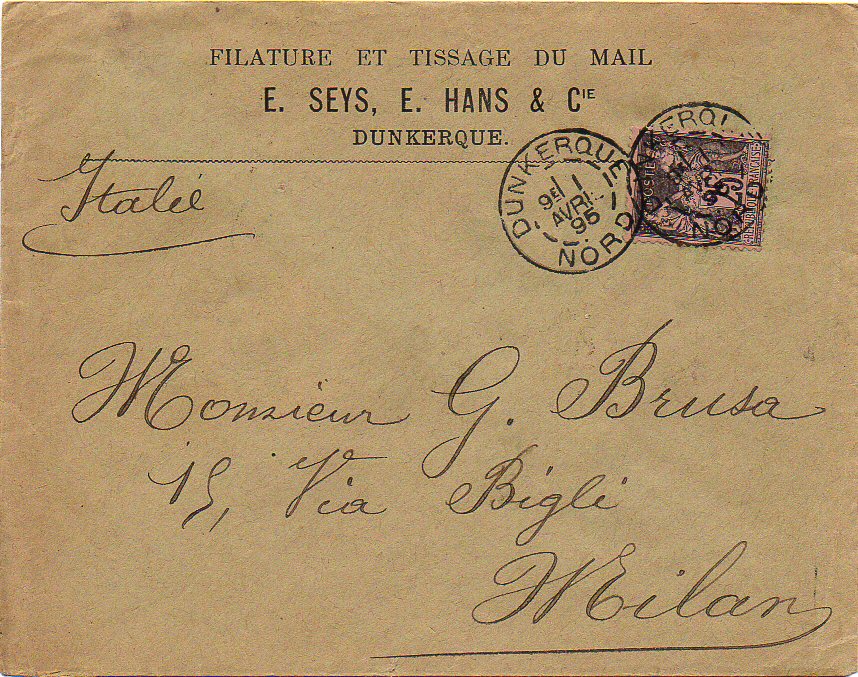 FILATURE ET TISSAGE DU MAIL
E. SEYS, E. HANS & CIE
DUNKERQUE.
Italie
DUNKERQUE
9E 1
AVRIL
95
NORD
POSTE
25
RÉPUBLIQUE FRANÇAISE
NORD
Monsieur G. Brusa
15, Via Bigli
Milan